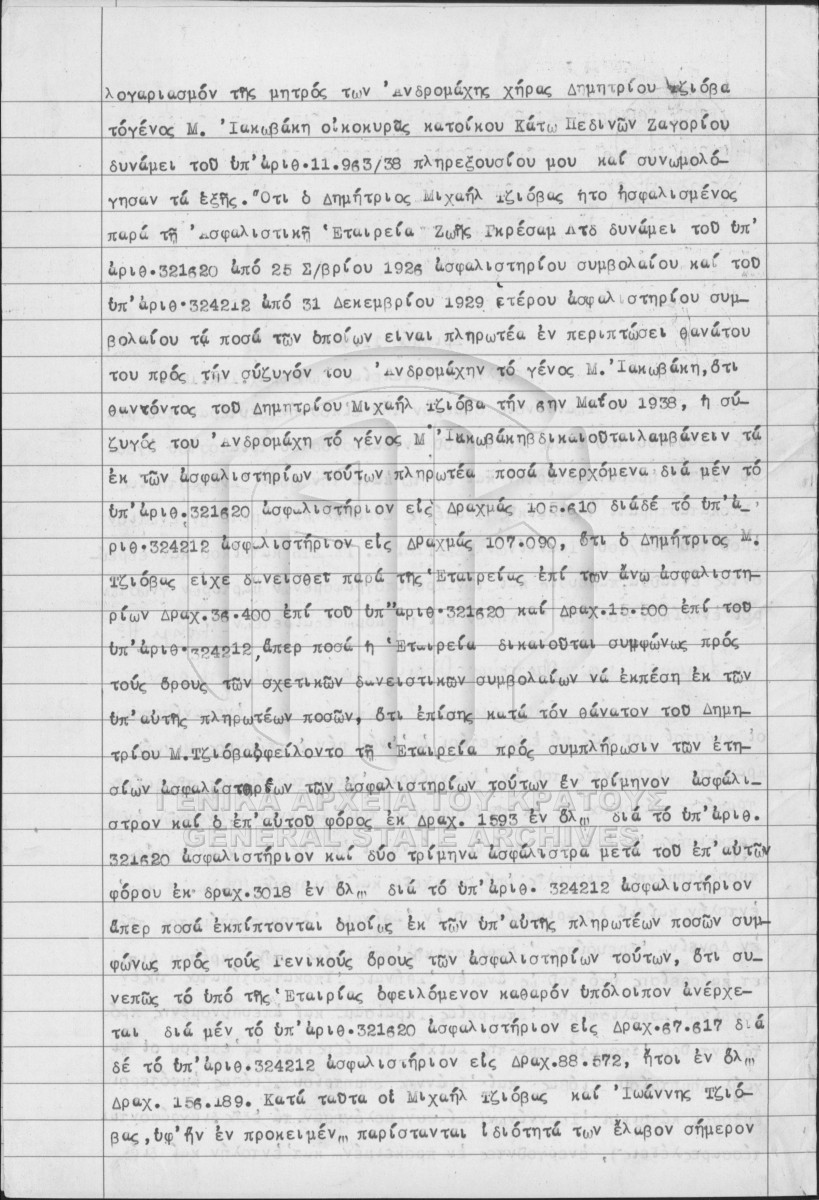 λογαριασμόν τῆς μητρός των Ἀνδρομάχης χήρας Δημητρίου Τζιόβα
τόγένος Μ. Ἰακωβάκη οἰκοκυρᾶς κατοίκου Κάτω Πεδινῶν Ζαγορίου
δυνάμει τοῦ ὑπ'ἀριθ.11.963/38 πληρεξουσίου μου καί συνωμολό-
γησαν τά ἑξῆς. Ὅτι ὁ Δημήτριος Μιχαήλ Τζιόβας ἦτο ἠσφαλισμένος
παρά τῇ Ἀσφαλιστικῇ Ἑταιρεία Ζωῆς Γκρέσαμ Λτδ δυνάμει τοῦ ὑπ'
ἀριθ.321620 ἀπό 25 Σ/βρίου 1926 ἀσφαλιστηρίου συμβολαίου καί τοῦ
ὑπ'ἀριθ.324212 ἀπό 31 Δεκεμβρίου 1929 ἑτέρου ἀσφαλιστηρίου συμ-
βολαίου τά ποσά τῶν ὁποίων εἶναι πληρωτέα ἐν περιπτώσει θανάτου
του πρός τήν σύζυγόν του Ἀνδρομάχην τό γένος Μ.Ἰακωβάκη,ὅτι
θανόντος τοῦ Δημητρίου Μιχαήλ Τζιόβα τήν 6ην Μαΐου 1938, ἡ σύ-
ζυγός του Ἀνδρομάχη τό γένος Μ Ἰακωβάκηβδικαιοῦταιλαμβάνειν τά
ἐκ τῶν ἀσφαλιστηρίων τούτων πληρωτέα ποσά ἀνερχόμενα διά μέν τό
ὑπ'ἀριθ.321620 ἀσφαλιστήριον εἰς Δραχμάς 105.610 διάδέ τό ὑπ'ἀ-
ριθ.324212 ἀσφαλιστήριον εἰς Δραχμάς 107.090, ὅτι ὁ Δημήτριος Μ.
Τζιόβας εἶχε δανεισθεῖ παρά τῆς Ἑταιρείας ἐπί τῶν ἄνω ἀσφαλιστη-
ρίων Δραχ.36.400 ἐπί τοῦ ὑπ"ἀριθ.321620 καί Δραχ.15.500 ἐπί τοῦ
ὑπ'ἀριθ.324212,ἅπερ ποσά ἡ Ἑταιρεία δικαιοῦται συμφώνως πρός
τούς ὅρους τῶν σχετικῶν δανειστικῶν συμβολαίων νά ἐκπέση ἐκ τῶν
ὑπ'αὐτῆς πληρωτέων ποσῶν, ὅτι ἐπίσης κατά τόν θάνατον τοῦ Δημη-
τρίου Μ.Τζιόβαὠφείλοντο τῇ Ἑταιρεία πρός συμπλήρωσιν τῶν ἐτη-
σίων ἀσφαλίστρων τῶν ἀσφαλιστηρίων τούτων ἕν τρίμηνον ἀσφάλι-
στρον καί ὁ ἐπ'αὐτοῦ φόρος ἐκ Δραχ. 1593 ἐν ὅλῳ διά τό ὑπ'ἀριθ.
321620 ἀσφαλιστήριον καί δύο τρίμηνα ἀσφάλιστρα μετά τοῦ ἐπ'αὐτῶν
φόρου ἐκ δραχ.3018 ἐν ὅλῳ διά τό ὑπ'ἀριθ. 324212 ἀσφαλιστήριον
ἅπερ ποσά ἐκπίπτονται ὁμοίως ἐκ τῶν ὑπ'αὐτῆς πληρωτέων ποσῶν συμ-
φώνως πρός τούς Γενικούς ὅρους τῶν ἀσφαλιστηρίων τούτων, ὅτι συ-
νεπῶς τό ὑπό τῆς Ἑταιρίας ὀφειλόμενον καθαρόν ὑπόλοιπον ἀνέρχε-
ται διά μέν τό ὑπ'ἀριθ.321620 ἀσφαλιστήριον εἰς Δραχ.67.617 διά
δέ τό ὑπ'ἀριθ.324212 ἀσφαλιστήριον εἰς Δραχ.88.572, ἤτοι ἐν ὅλῳ
Δραχ. 156.189. Κατά ταῦτα οἱ Μιχαήλ Τζιόβας καί Ἰωάννης Τζιό-
βας,ὑφ'ἥν ἐν προκειμένῳ παρίστανται ἰδιότητά των ἔλαβον σήμερον
ΓΕΝΙΚΑ ΑΡΧΕΙΑ ΤΟΥ ΚΡΑΤΟΥΣ
GENERAL STATE ARCHIVES